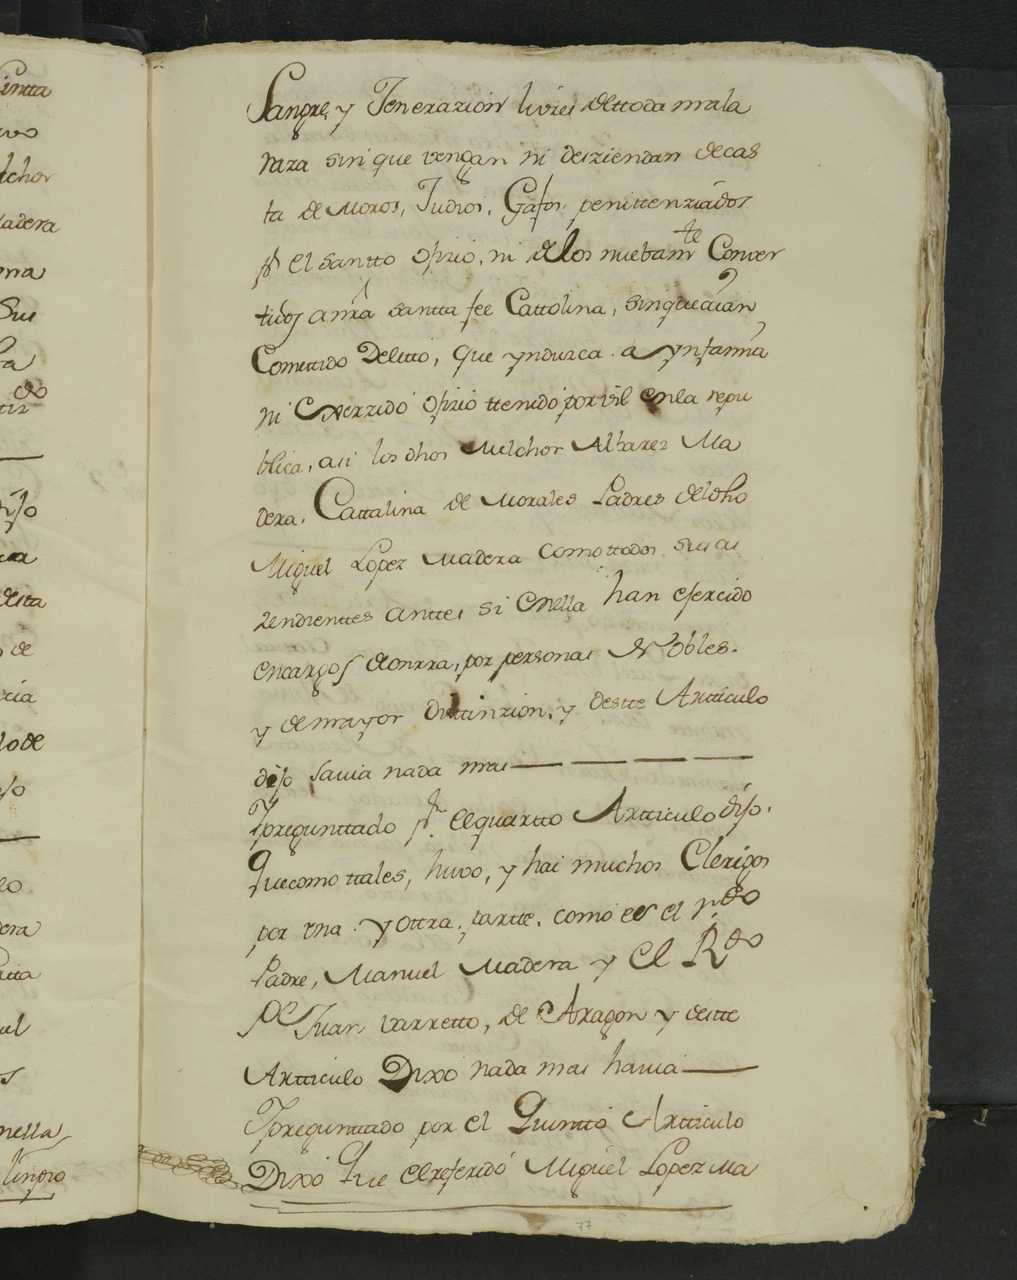 Sangre, y Jenerazion livres dettoda mala
raza sin que vengan ni desziendan de cas
ta de Moros, Judios, Gafos, penittenziados
pr el Santto Ofizio, ni de los nuebamte Conver
tidos a nra santta fee Cattolica, sin que aian
Comettido Delitto, que yndusca a ynfamia
ni Exerzido Ofizio ttenido por vil en la repu
blica, asi los dhos Melchor Albarez Ma
dera, Cattalina de Morales Padres del dho
Miguel Lopez Madera como ttodos sus as
zendienttes anttes si en ella han ejercido
encargos de onrra, por personas Nobles.
y de mayor disttinzion, y destte Artticulo
dijo savia nada mas
Ypregunttado pr. el quartto Artticulo dijo.
Que como ttales, huvo, y hai muchos Clerigos
por una y ottra partte, como es el Rdo
Padre, Manuel Madera y el Rdo
Pe Juan varretto, de Aragon y destte
Artticulo Dixo nada mas havia
Ypregunttado por el Quintto Artticulo
Dixo Que el referido Miguel Lopez Ma
77